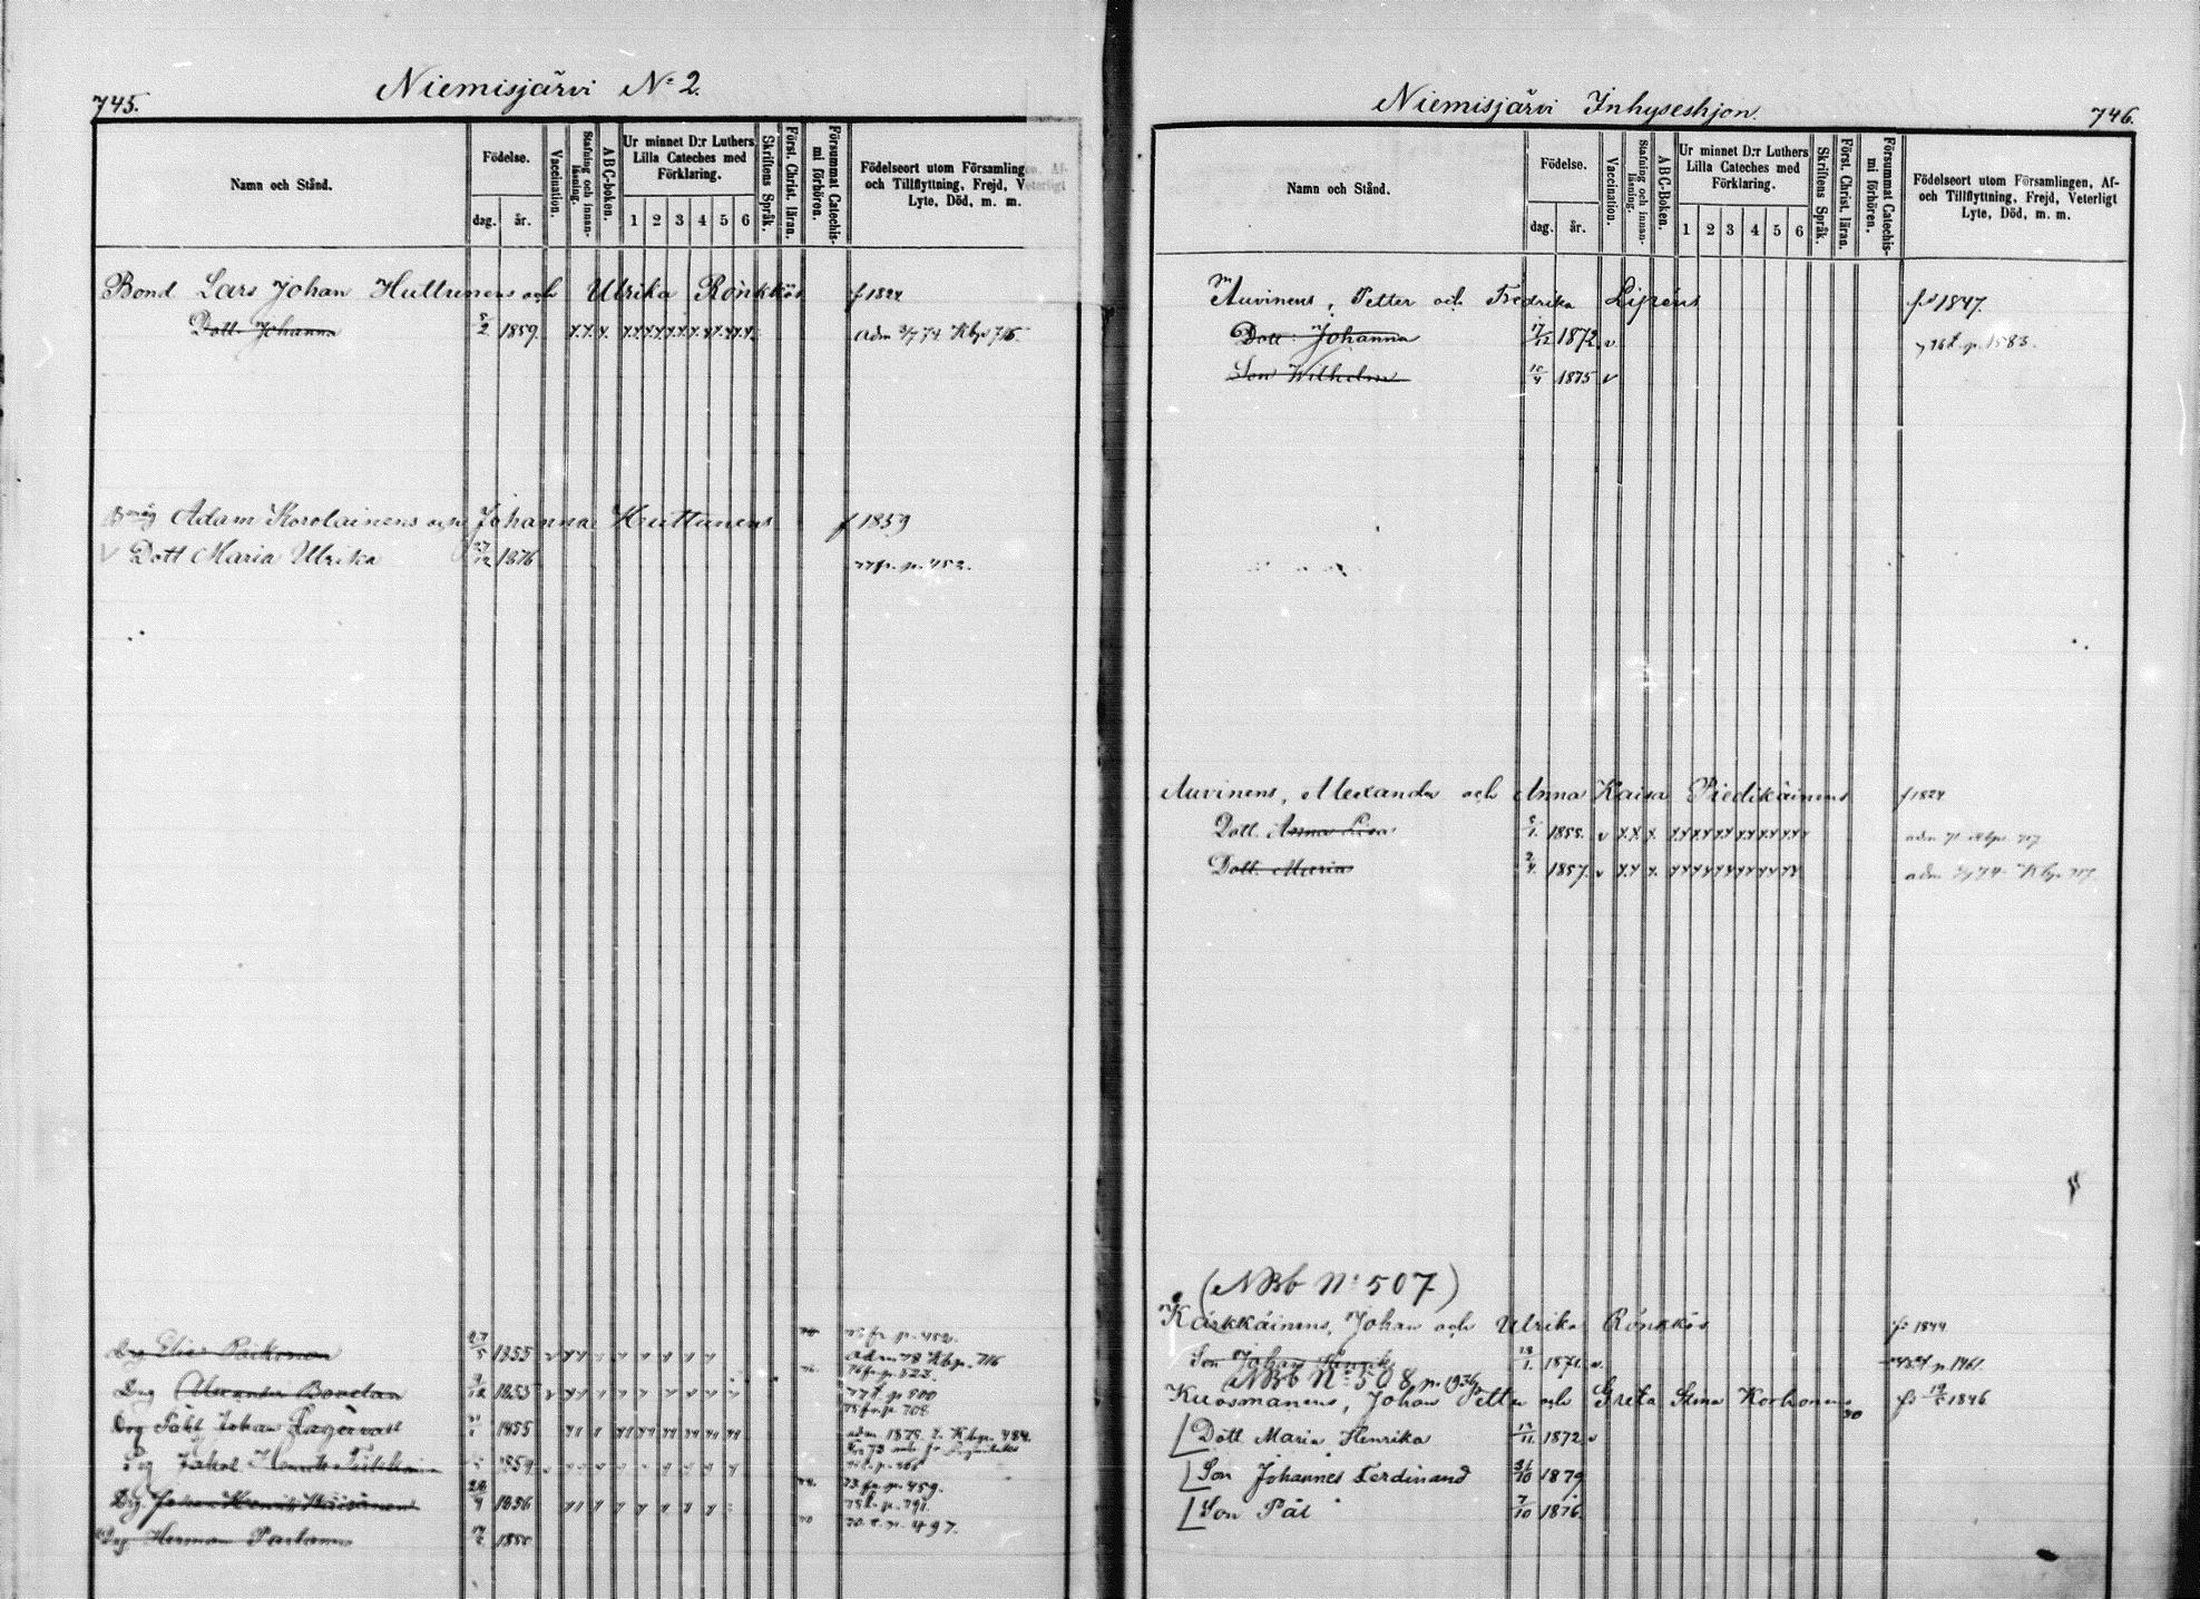 745.
Niemisjärvi No 2.
Namn och Stånd.
Födelse.
dag.
år.
Vaccination.
Stafning och innan-
läsning.
ABC-boken.
Ur minnet D:r Luthers
Lilla Cateches med
Förklaring.
1 2 3 4 5 6
Skriftens Språk.
Först. Christ. läran.
Försummat Catechis-
mi förhören.
Födelseort utom Församlingen, Af-
och Tillflyttning, Frejd, Veterligt
Lyte, Död, m. m.
Bond Lars Johan Huttunens och Ulrika Rönkkös f 1824
Dott. Johanna 5/2 1859. Kbp 716.
Adam Korolainens och Johanna Huttunens f 1859
Dott Maria Ulrika 27/12 1876 77 fr. p. 452.
76 fr. p. 452.
Drg Elias 27/5 1855 adm 78 Kbp. 716
76 fr. p. 523.
Drg Alexander 1853 77 t. p. 800
Drg Påhl Johan Lagervall 1855 adm 1875. Kbp. 484.
Drg Jakob Henrik 1859
73 fr. p. 459.
Drg. Johan Henrik 28/4 1856 75 t. p. 791.
Drg Herman 17/2 1850 t. p. 497.
Niemisjärvi Inhyseshjon.
746.
Namn och Stånd.
Födelse.
dag.
år.
Vaccination.
Stafning och innan-
läsning.
ABC-boken.
Ur minnet D:r Luthers
Lilla Cateches med
Förklaring.
1 2 3 4 5 6
Skriftens Språk.
Först. Christ. läran.
Försummat Catechis-
mi förhören.
Födelseort utom Församlingen, Af-
och Tillflyttning, Frejd, Veterligt
Lyte, Död, m. m.
Auvinens, Petter och Fredrika Lipéns 1847.
Dott. Johanna 17/12 1872 v 76 t. p. 1583.
Son Wilhelm 10/4 1875 v
Auvinens, Alexander och Anna Kaisa Piedikäinens f 1824
Dott. Anna Lisa 5/1. 1855. v
Dott. Maria 2/4. 1857. v
(NBb No 507)
Kärkkäinens, Johan och Ulrika Rönkkös 1844
Son Johan Henrik 1871. v. p. 1461.
NBb No 508 p. 1936
Kuosmanens, Johan Petter och Greta Stina Korhonens 1846
Dott Maria Henrika 13/11. 1872 v
Son Johannes Ferdinand 31/10 1879
Son Pål 7/10 1876.